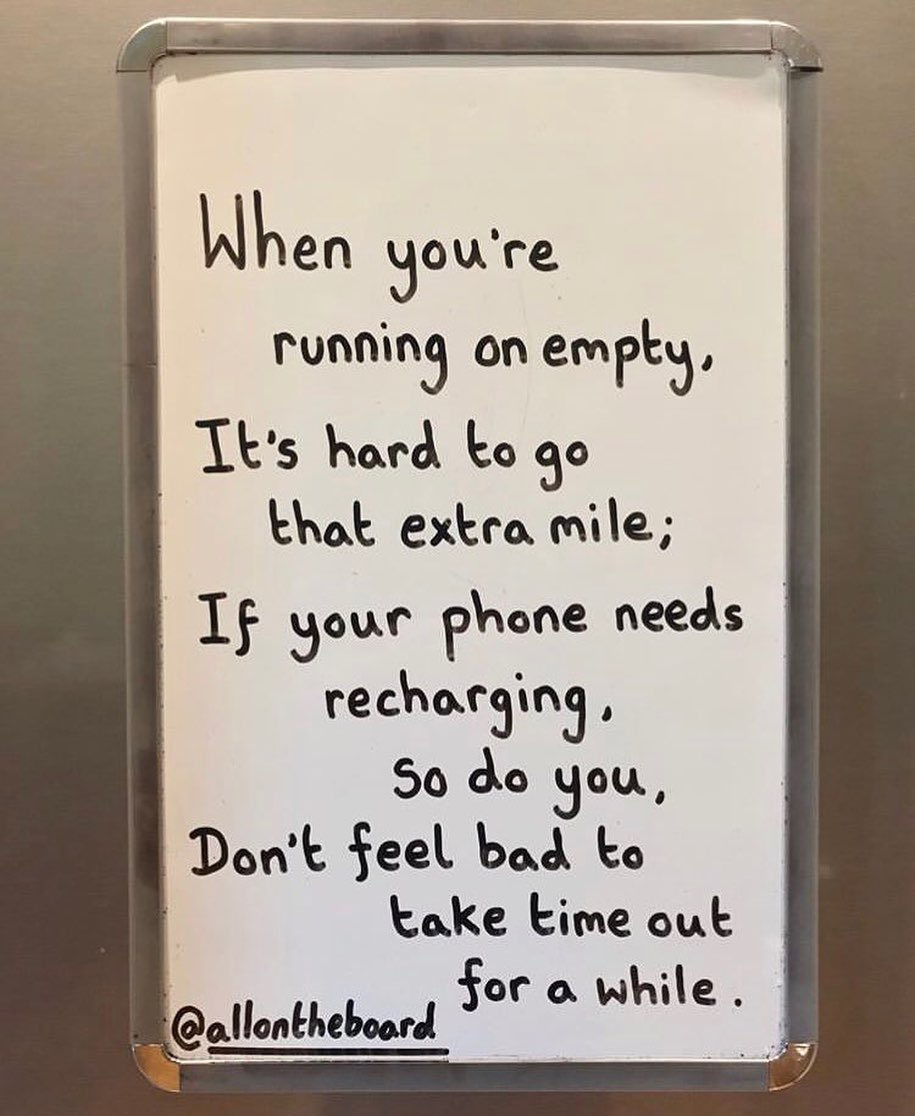 When you're
running on empty,
It's hard to go
that extra mile;
If your phone needs
recharging,
so do you,
Don't feel bad to
take time out
for a while.
@allontheboard